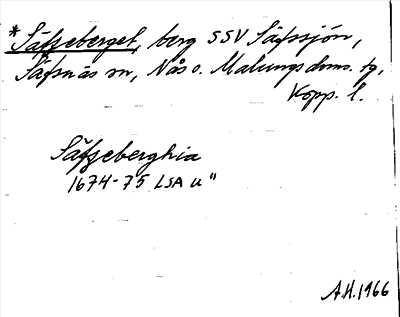 *Säfseberget, berg SSV Säfssjön,
Säfsnäs sn, Nås o. Malungs doms. tg,
Kopp. l.
Säfseberghia
1674-75 LSA u"
A.H. 1966